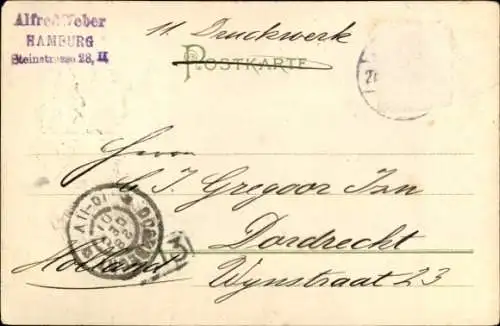 Alfred Weber
HAMBURG
Steinstrasse 28, II
Druckwerk
POSTKARTE
Herrn
C. J. Gregoor Jzn
Dordrecht
Wynstraat 23
Holland